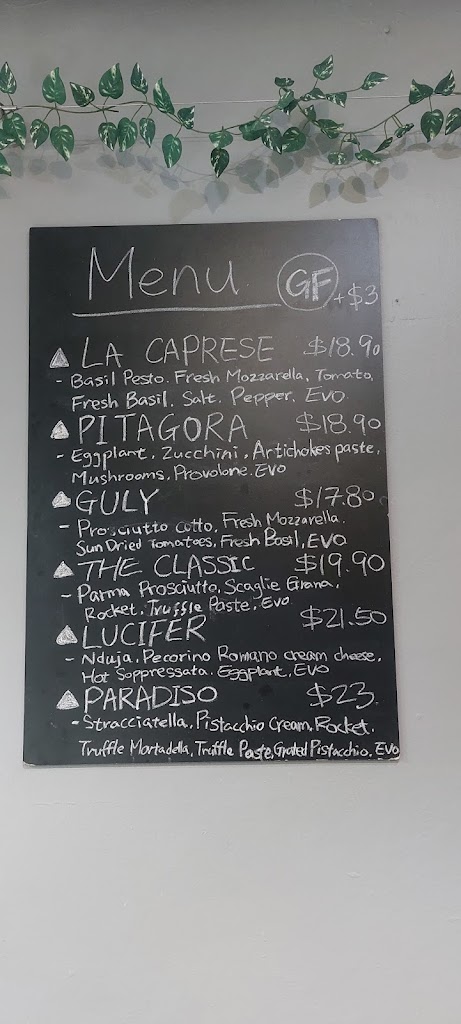 Menu GF +$3
LA CAPRESE $18.90
- Basil Pesto. Fresh Mozzarella, Tomato,
Fresh Basil. Salt. Pepper. EVO
PITAGORA $18.90
- Eggplant, Zucchini, Artichokes paste,
Mushrooms, Provolone. EVO
GULY $17.80
- Prosciutto Cotto, Fresh Mozzarella.
Sun Dried Tomatoes, Fresh Basil, EVO
THE CLASSIC $19.90
- Parma Prosciutto, Scaglie Grana,
Rocket, Truffle Paste, EVO
LUCIFER $21.50
- Nduja, Pecorino Romano cream cheese,
Hot Soppressata. Eggplant, EVO
PARADISO $23
- Stracciatella, Pistacchio Cream, Rocket,
Truffle Mortadella, Truffle Paste, Grated Pistacchio, EVO